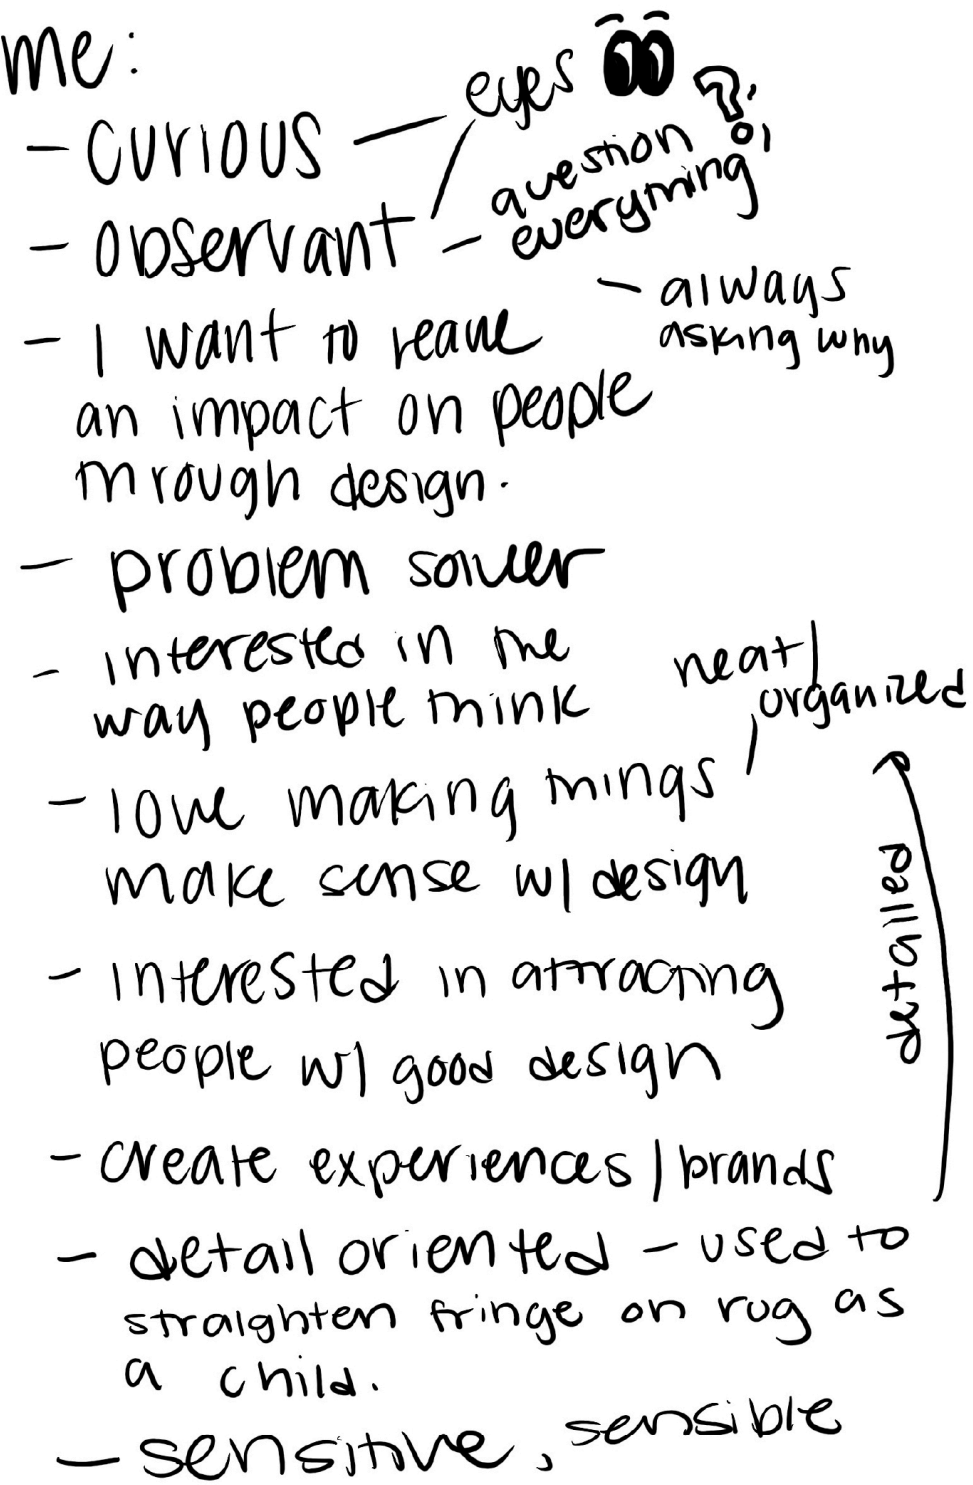 me:
- curious — eyes
- observant - question everything ?!
- always
asking why
- I want to leave
an impact on people
through design.
- problem solver
- interested in the
way people think
neat/
organized
- love making things
make sense w/ design
detailed
- interested in attracting
people w/ good design
- create experiences / brands
- detail oriented - used to
straighten fringe on rug as
a child.
- sensitive, sensible